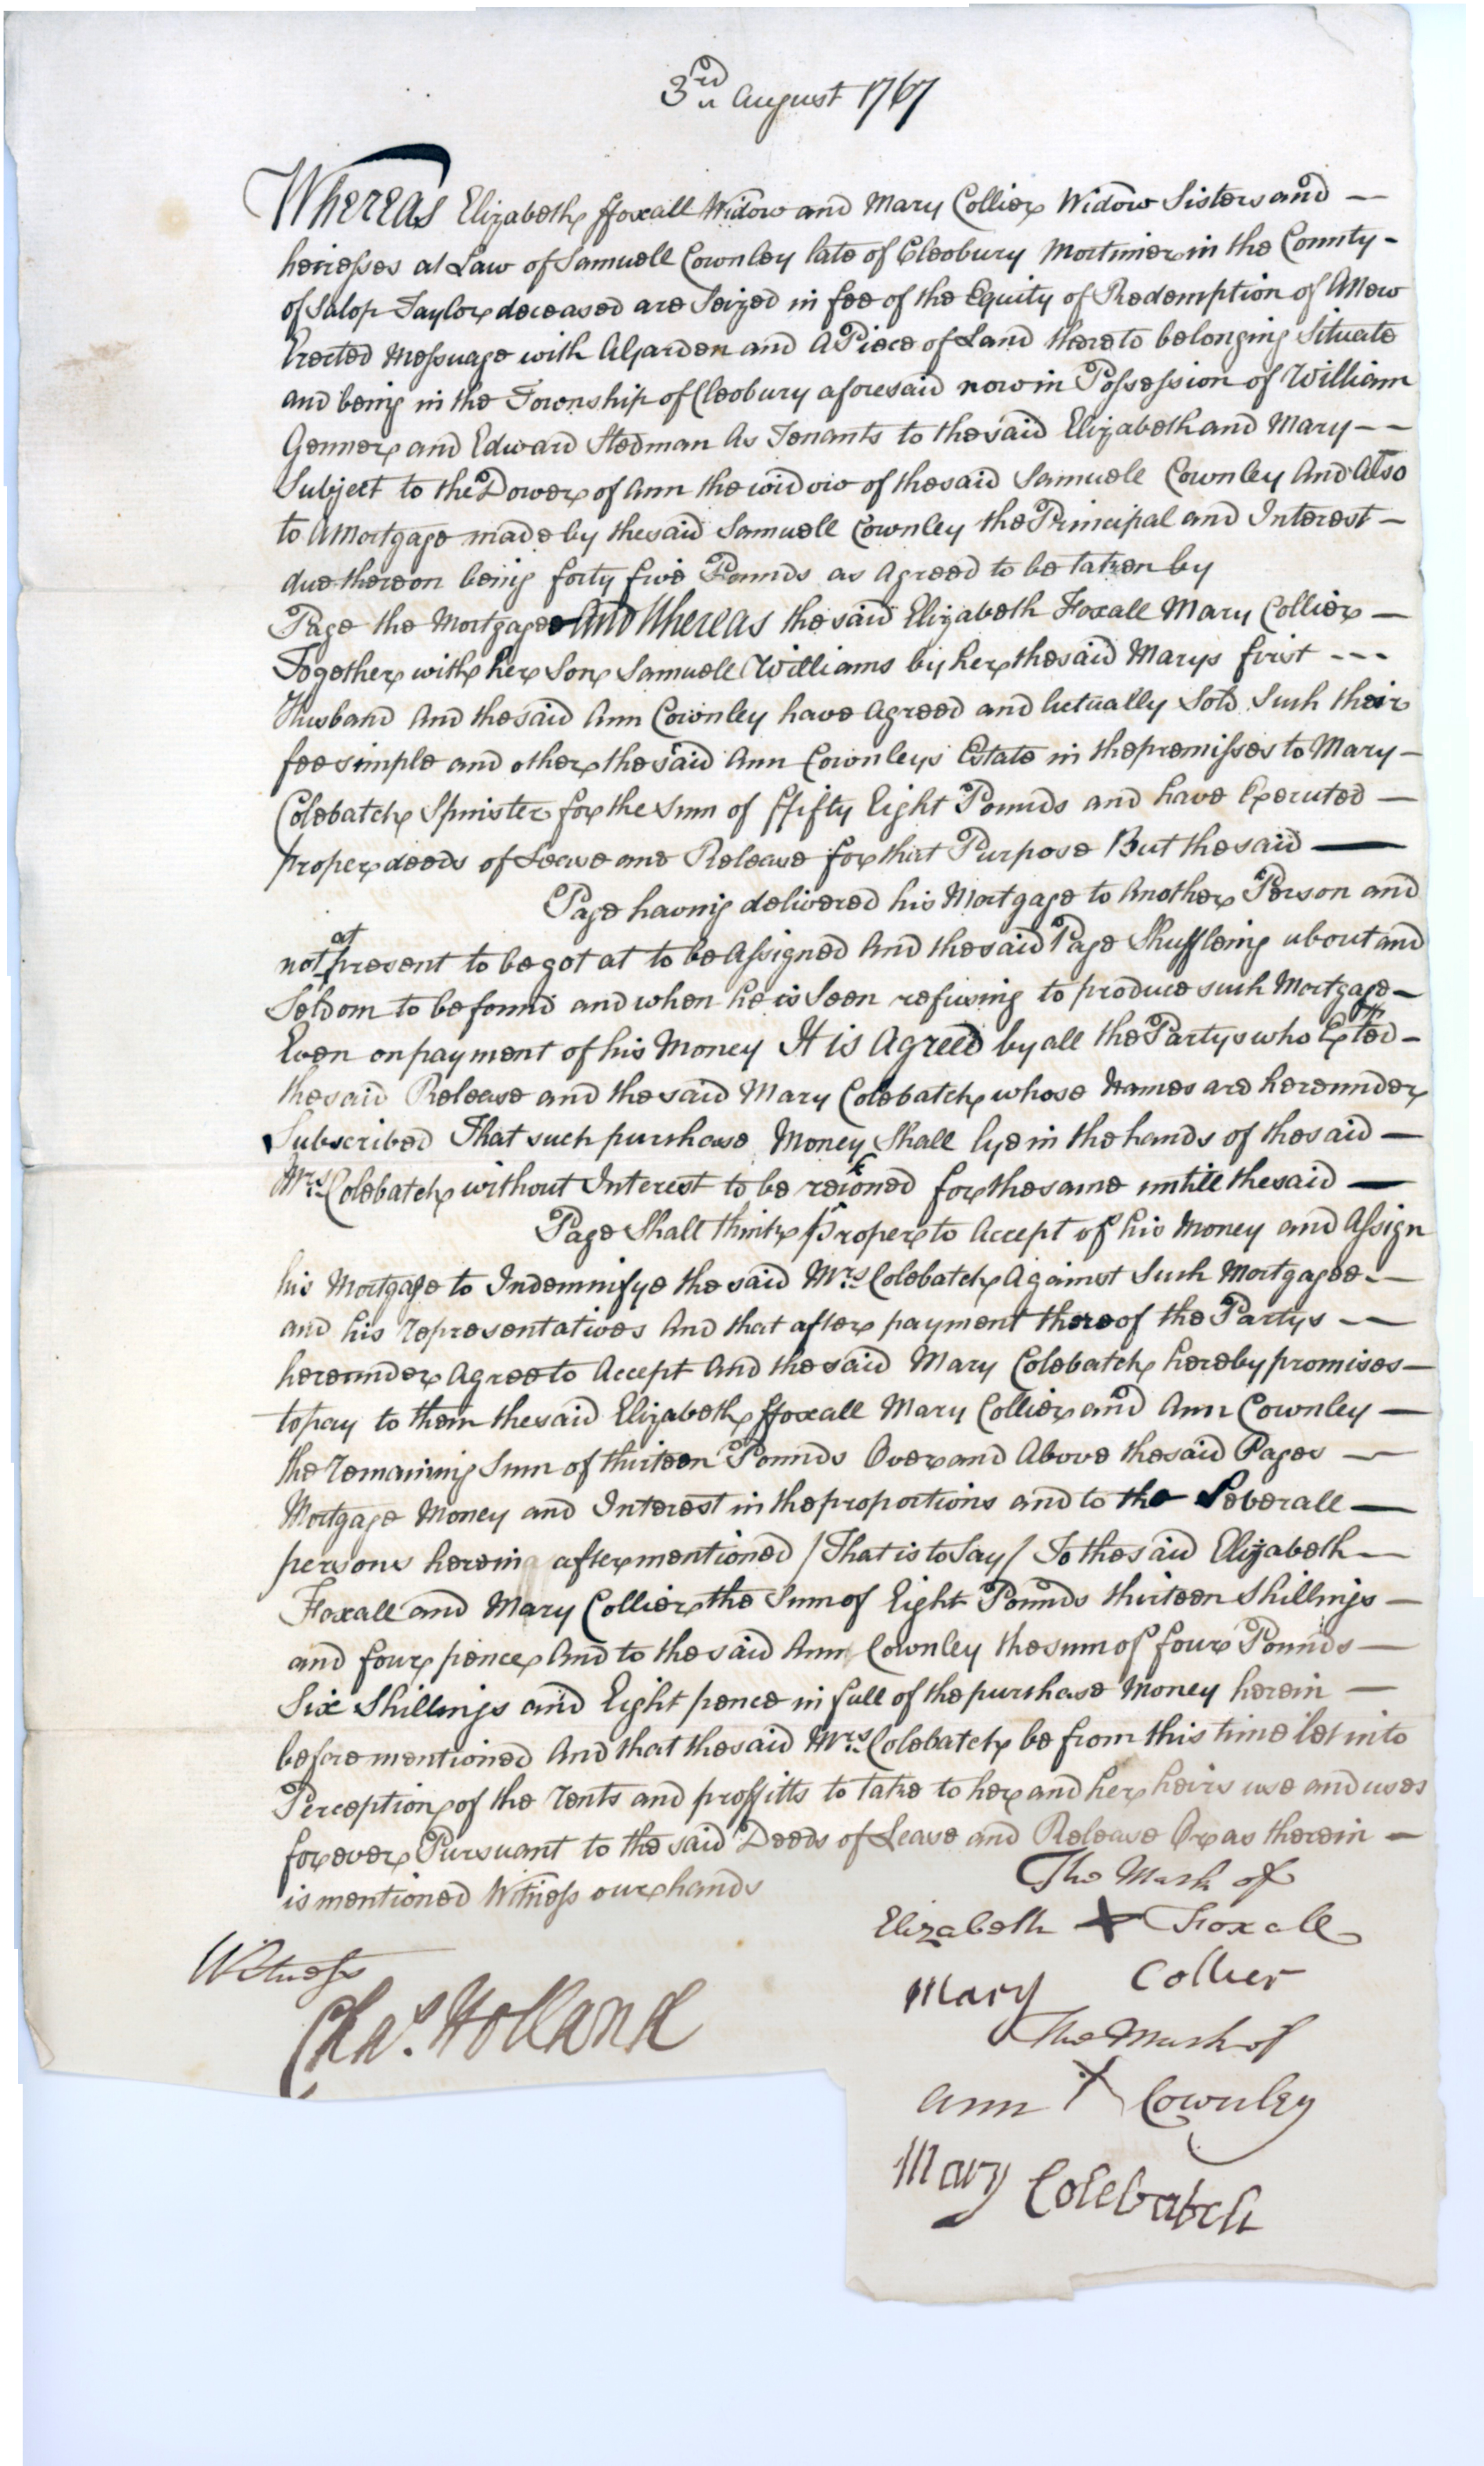 3rd August 1767
Whereas Elizabeth ffoxall Widow and Mary Collier Widow Sisters and —
heiresses at Law of Samuell Cownley late of Cleobury Mortimer in the County -
of Salop Taylor deceased are Seized in fee of the Equity of Redemption of A New
Erected Messuage with A Garden and A Piece of Land thereto belonging Situate
and being in the Township of Cleobury aforesaid now in Possession of William
Genner and Edward Stedman As Tenants to the said Elizabeth and Mary — —
Subject to the Dower of Ann the widow of the said Samuell Cownley And Also
to A Mortgage made by the said Samuell Cownley the Principal and Interest —
due thereon being forty five Pounds as Agreed to be taken by
Page the Mortgagee And Whereas the said Elizabeth Foxall Mary Collier —
Together with her Son Samuell Williams by her the said Marys first - - -
Husband And the said Ann Cownley have Agreed and Actually Sold Such their
fee simple and other the said Ann Cownleys Estate in the premisses to Mary —
Colebatch Spinster for the Sum of ffifty Eight Pounds and have Executed —
proper deeds of Lease and Release for that Purpose But the said —
Page having delivered his Mortgage to Another Person and
not at present to be got at to be Assigned And the said Page Shuffleing about and
Seldom to be found and when he is Seen refusing to produce such Mortgage —
Even on payment of his Money It is Agreed by all the Partys who Exted —
the said Release and the said Mary Colebatch whose Names are hereunder
Subscribed That such purchase Money Shall lye in the hands of the said —
Mrs. Colebatch without Interest to be reckoned for the same untill the said —
Page Shall think Proper to Accept of his Money and Assign
his Mortgage to Indemnifye the said Mrs. Colebatch Against Such Mortgagee —
and his representatives And that after payment thereof the Partys — —
hereunder Agree to Accept And the said Mary Colebatch hereby promises —
to pay to them the said Elizabeth ffoxall Mary Collier and Ann Cownley —
the remaining Sum of thirteen Pounds Over and Above the said Pages —
Mortgage Money and Interest in the proportions and to the Severall —
persons herein after mentioned / That is to Say / To the said Elizabeth —
Foxall and Mary Collier the Sum of Eight Pounds thirteen Shillings —
and four pence And to the said Ann Cownley the sum of four Pounds —
Six Shillings and Eight pence in full of the purchase Money herein —
before mentioned And that the said Mrs. Colebatch be from this time let into
Perception of the rents and proffitts to take to her and her heirs use and uses
for ever Pursuant to the said Deeds of Lease and Release Or as therein —
is mentioned Witness our hands
The Mark of
Elizabeth X Foxall
Witness
Chas. Holland
Mary Collier
The Mark of
Ann X Cownley
Mary Colebatch